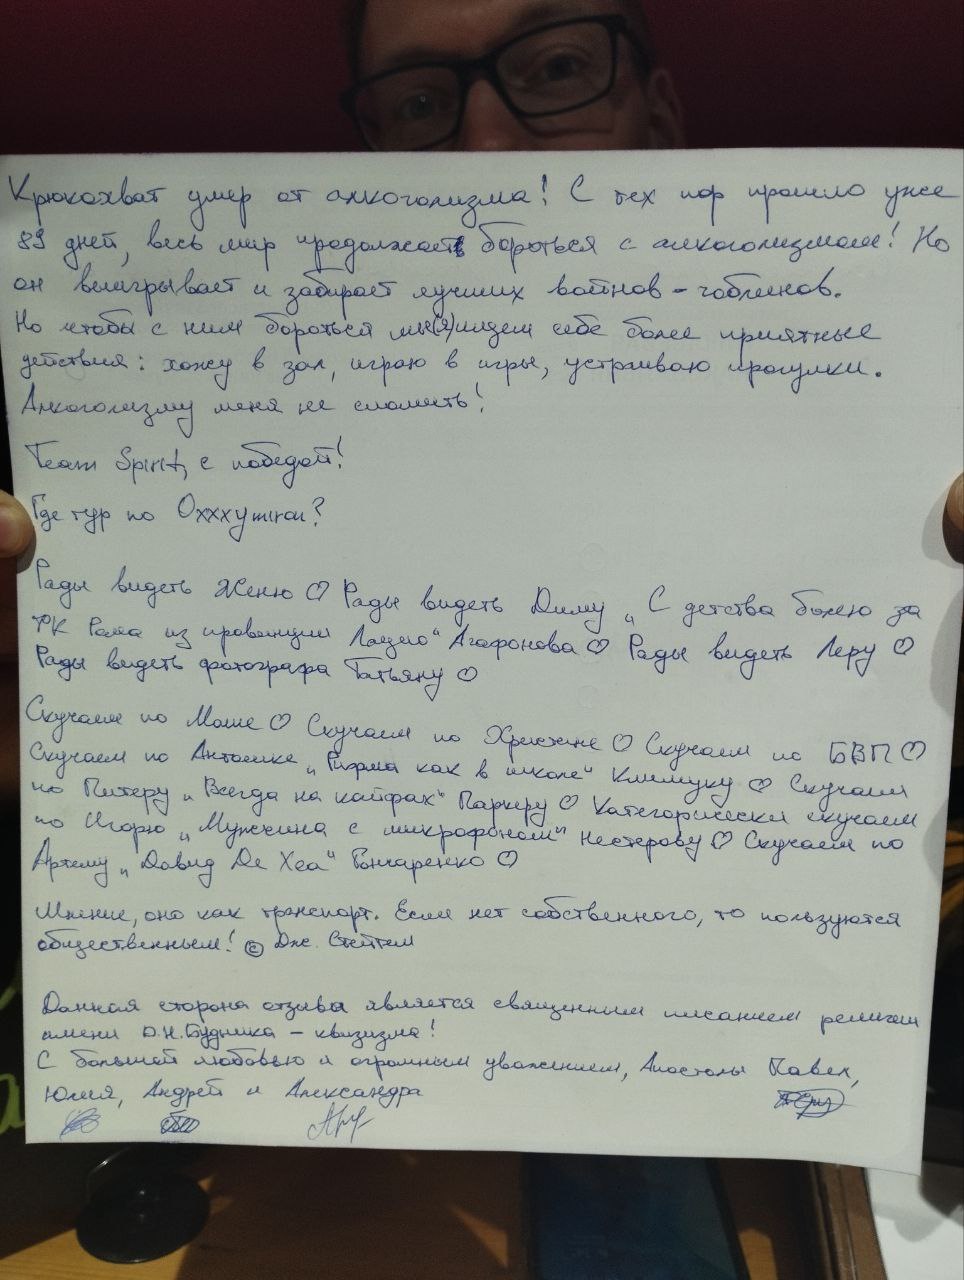 Крюкохват умер от алкоголизма! С тех пор прошло уже
89 дней, весь мир продолжает бороться с алкоголизмом! Но
он выигрывает и забирает лучших войнов - гоблинов.
Но чтобы с ним бороться мы(я)ищем себе более приятные
действия: хожу в зал, играю в игры, устраиваю прогулки.
Алкоголизму меня не сломить!
Team Spirit, с победой!
Где тур по Oxxxymiron?
Рады видеть Женю ♡ Рады видеть Диму „С детства болею за
ФК Рома из провинции Лацио“ Агафонова ♡ Рады видеть Леру ♡
Рады видеть фотографа Татьяну ♡
Скучаем по Маше ♡ Скучаем по Христине ♡ Скучаем по БВП ♡
Скучаем по Антошке „Рифма как в школе“ Климуку ♡ Скучаем
по Питеру „Всегда на кайфах“ Паркеру ♡ Категорически скучаем
по Игорю „Мужчина с микрофоном“ Нестерову ♡ Скучаем по
Артему „Давид Де Хеа“ Гончаренко ♡
Мнение, оно как транспорт. Если нет собственного, то пользуются
общественным! © Дж. Стейтем
Данная сторона отзыва является священным писанием религии
имени Д.Н.Будника - квизизма!
С большой любовью и огромным уважением, Апостолы Павел,
Юлия, Андрей и Александра